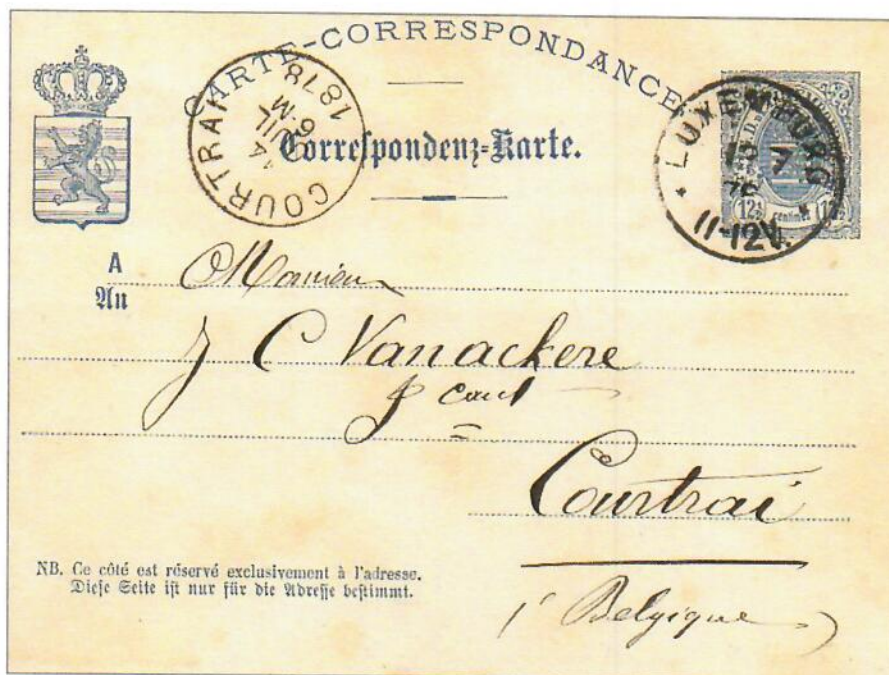 CARTE-CORRESPONDANCE
Correspondenz-Karte.
COURTRAI
14 JUIL
6-M
1878
LUXEMBURG
7
11-12V.
12½ centimes 12½
A
An
Monsieur
J C Vanackere
Courtrai
Belgique
NB. Ce côté est réservé exclusivement à l'adresse.
Diese Seite ist nur für die Adresse bestimmt.